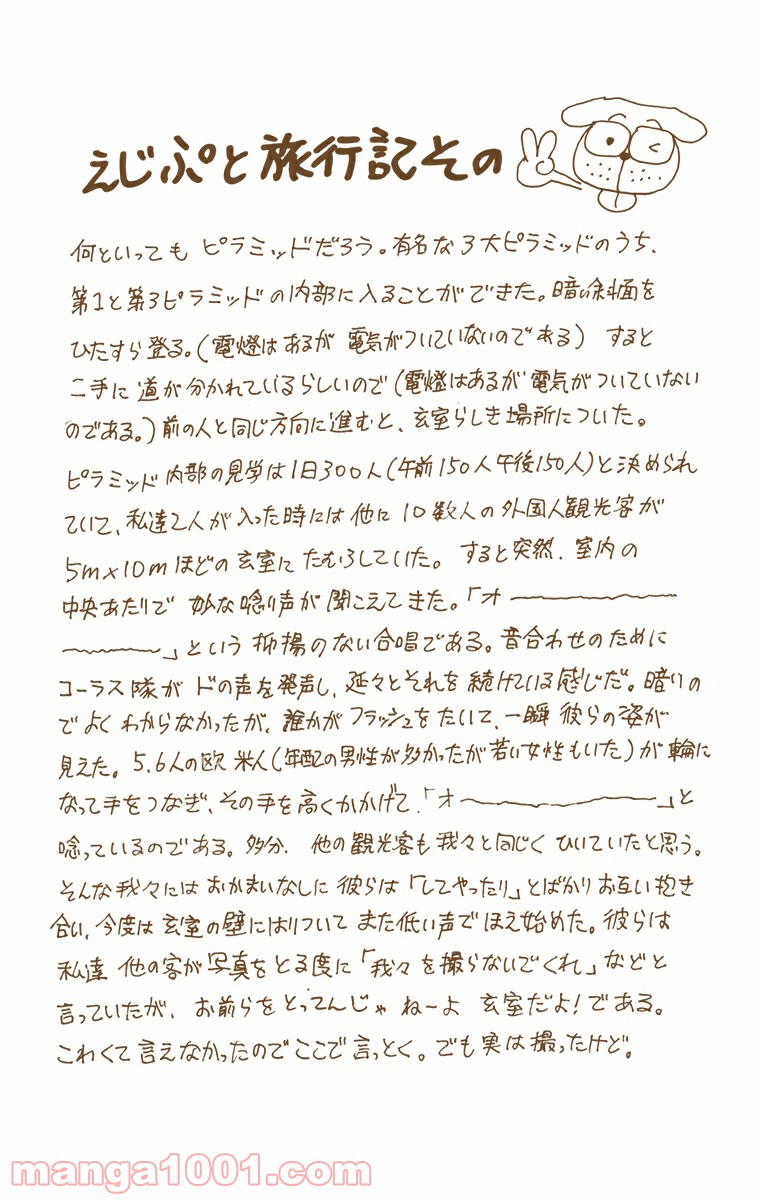 えじぷと旅行記その
何といっても ピラミッドだろう。有名な3大ピラミッドのうち、
第1と第3ピラミッドの内部に入ることができた。暗い斜面を
ひたすら登る。(電燈はあるが 電気がついていないのである) すると
二手に道が分かれているらしいので(電燈はあるが電気がついていない
のである。)前の人と同じ方向に進むと、玄室らしき場所についた。
ピラミッド内部の見学は1日300人(午前150人午後150人)と決められ
ていて、私達2人が入った時には他に10数人の外国人観光客が
5m×10mほどの玄室にたむろしていた。 すると突然、室内の
中央あたりで 妙な唸り声が聞こえてきた。「オ〜
〜」という抑揚のない合唱である。音合わせのために
コーラス隊がドの声を発声し、延々とそれを続けている感じだ。暗いの
でよくわからなかったが、誰かがフラッシュをたいて、一瞬彼らの姿が
見えた。5.6人の欧米人(年配の男性が多かったが若い女性もいた)が輪に
なって手をつなぎ、その手を高くかかげて、「オ〜」と
唸っているのである。多分、他の観光客も我々と同じくひいていたと思う。
そんな我々にはおかまいなしに彼らは「してやったり」とばかりお互い抱き
合い、今度は玄室の壁にはりついてまた低い声でほえ始めた。彼らは
私達 他の客が写真をとる度に「我々を撮らないでくれ」などと
言っていたが、お前らをとってんじゃねーよ 玄室だよ!である。
こわくて言えなかったのでここで言っとく。でも実は撮ったけど。
manga1001.com